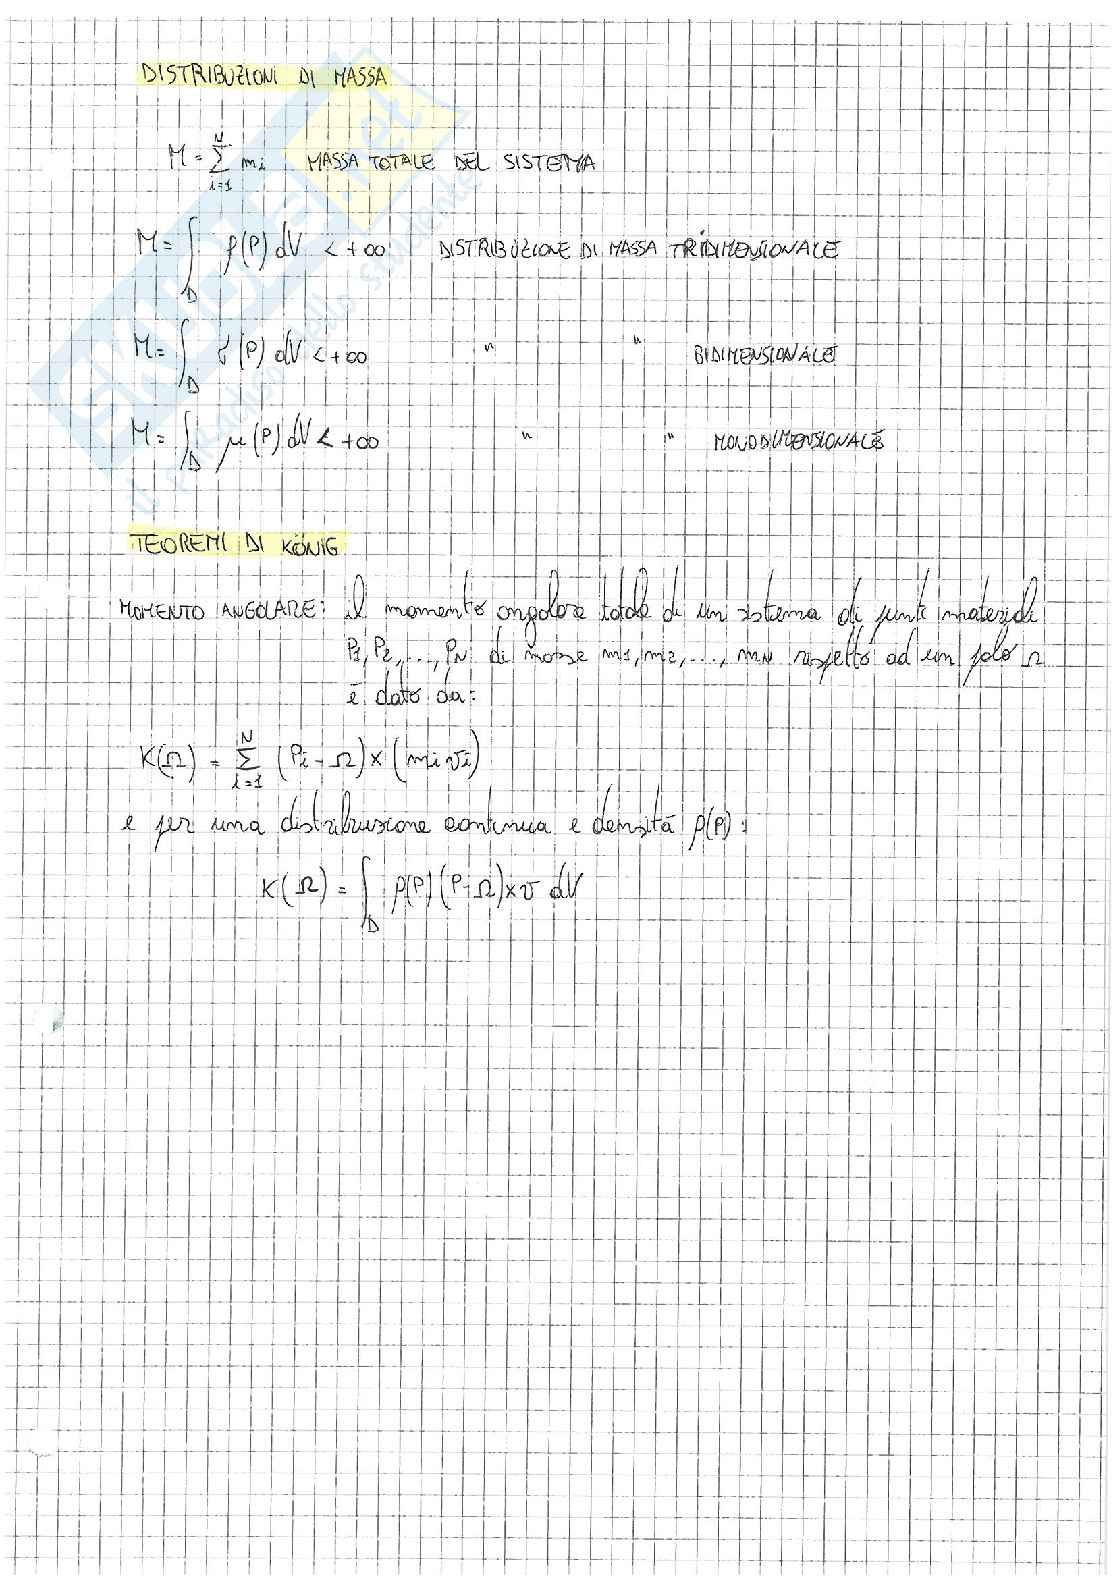 DISTRIBUZIONI DI MASSA
M = ∑_{i=1}^{N} mi MASSA TOTALE DEL SISTEMA
M = ∫_D ρ(P) dV < +∞ DISTRIBUZIONE DI MASSA TRIDIMENSIONALE
M = ∫_D (P) dV < +∞ " " BIDIMENSIONALE
M = ∫_D μ(P) dV < +∞ " " MONODIMENSIONALE
TEOREMI DI KÖNIG
MOMENTO ANGOLARE: il momento angolare totale di un sistema di punti materiali
P1, P2, ..., PN di masse m1, m2, ..., mN rispetto ad un polo Ω
è dato da:
K(Ω) = ∑_{i=1}^{N} (Pi - Ω) × (mi vi)
e per una distribuzione continua e densità ρ(P):
K(Ω) = ∫_D ρ(P) (P - Ω) × v dV
skuola.net
il paradiso dello studente